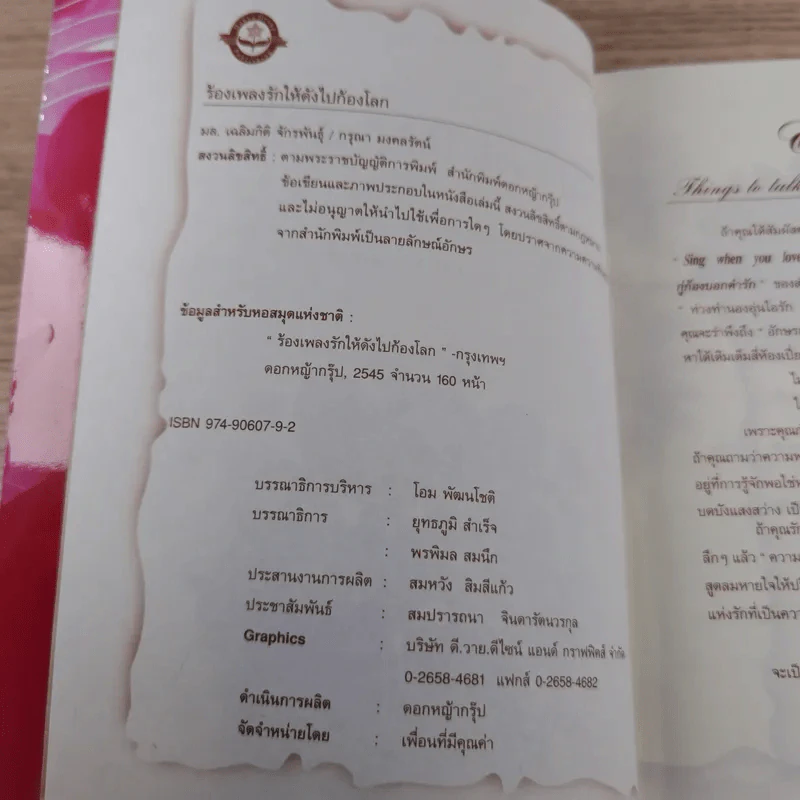 ร้องเพลงรักให้ดังไปก้องโลก
มล. เฉลิมกิติ จักรพันธุ์ / กรุณา มงคลรัตน์
สงวนลิขสิทธิ์ : ตามพระราชบัญญัติการพิมพ์ สำนักพิมพ์ดอกหญ้ากรุ๊ป
ข้อเขียนและภาพประกอบในหนังสือเล่มนี้ สงวนลิขสิทธิ์ตามกฎหมาย
และไม่อนุญาตให้นำไปใช้เพื่อการใดๆ โดยปราศจาก
จากสำนักพิมพ์เป็นลายลักษณ์อักษร
ข้อมูลสำหรับหอสมุดแห่งชาติ :
" ร้องเพลงรักให้ดังไปก้องโลก " -กรุงเทพฯ
ดอกหญ้ากรุ๊ป, 2545 จำนวน 160 หน้า
ISBN 974-90607-9-2
บรรณาธิการบริหาร : โอม พัฒนโชติ
บรรณาธิการ : ยุทธภูมิ สำเร็จ
: พรพิมล สมนึก
ประสานงานการผลิต : สมหวัง สิมสีแก้ว
ประชาสัมพันธ์ : สมปรารถนา จินดารัตนวรกุล
Graphics : บริษัท ดี.วาย.ดีไซน์ แอนด์ กราฟฟิคส์ จำกัด
0-2658-4681 แฟกส์ 0-2658-4682
ดำเนินการผลิต : ดอกหญ้ากรุ๊ป
จัดจำหน่ายโดย : เพื่อนที่มีคุณค่า
Things to talk
ถ้าคุณได้สัมผัส
" Sing when you love
กู่ก้องบอกคำรัก " ของ
" ห่วงทำนองอุ่นไอรัก
คุณจะรำพึงถึง " อักษร
หาได้เติมเต็มสี่ห้อง
เพราะคุณ
ถ้าคุณถามว่าความ
อยู่ที่การรู้จักพอใช่
บดบังแสงสว่าง เป็
ถ้าคุณรัก
ลึกๆ แล้ว " ความ
สูดลมหายใจให้
แห่งรักที่เป็นความ
จะเป็